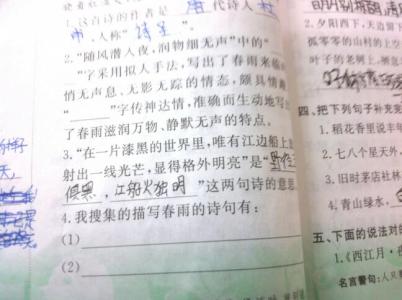 1.这首诗的作者是 唐 代诗人 杜
甫,人称“诗圣”。
2.“随风潜入夜,润物细无声”中的“
”字采用拟人手法,写出了春雨来临
悄无声息、无影无踪的情态,颇具情趣
“ ”字传神达情,准确而生动地写出
了春雨滋润万物、静默无声的特点。
3.“在一片漆黑的世界里,唯有江边船上
射出一线光芒,显得格外明亮”是“野径云
俱黑,江船火独明”这两句诗的意思
4.我搜集的描写春雨的诗句有:
(1)
(2)
2.夕阳西下,天边留下
孤零零的山村的上空
叶子的老树上,
四、把下列句子补充完
1.稻花香里说丰年
2.七八个星天外,
3.旧时茅店社林
4.青山绿水,
五、下面的说法对的
1.《西江月·夜
名言警句:人只